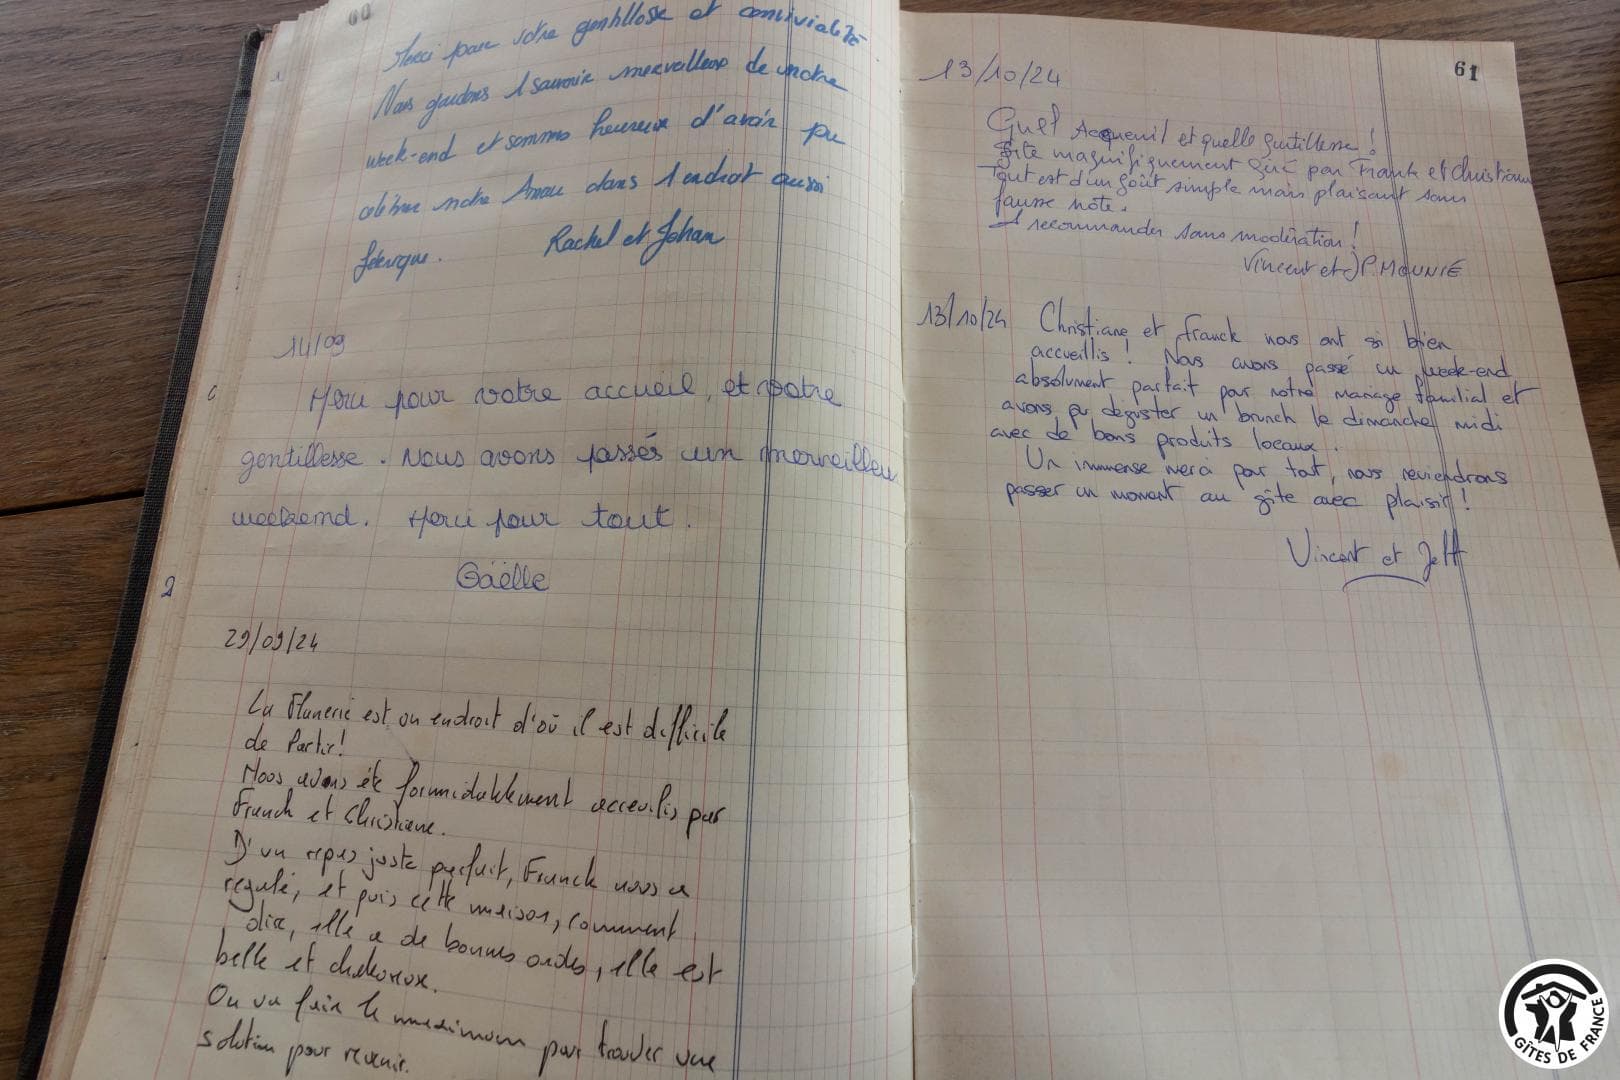 60
Merci pour votre gentillesse et convivialité
Nous gardons 1 souvenir merveilleux de notre
week-end et sommes heureux d'avoir pu
célébrer notre dans 1 endroit aussi
féerique. Rachel et Johan
14/09
Merci pour votre accueil, et votre
gentillesse. Nous avons passés un merveilleu
weekend. Merci pour tout.
Gaëlle
2
29/09/24
La Flanerie est un endroit d'où il est difficile
de Partir!
Nous avons été formidablement accueilis par
Franck et Christiane.
D'un repas juste parfait, Franck nous a
regalé, et puis cette maison, comment
dire, elle a de bonnes ondes, elle est
belle et chaleureuse.
On va faire le maximum pour trouver une
solution pour revenir.
61
13/10/24
Quel Acqueuil et quelle gentillesse!
Gite magnifiquement géré par Franck et Christiane
Tout est d'un goût simple mais plaisant sans
fausse note.
A recommander sans modération!
Vincent et JP. MOUNIÉ
13/10/24 Christiane et Franck nous ont si bien
accueillis! Nous avons passé un week-end
absolument parfait pour notre mariage familial et
avons pu déguster un brunch le dimanche midi
avec de bons produits locaux.
Un immense merci pour tout, nous reviendrons
passer un moment au gîte avec plaisir!
Vincent et Jeff
GÎTES DE FRANCE